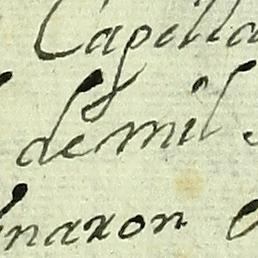 Capilla
de mil
naron